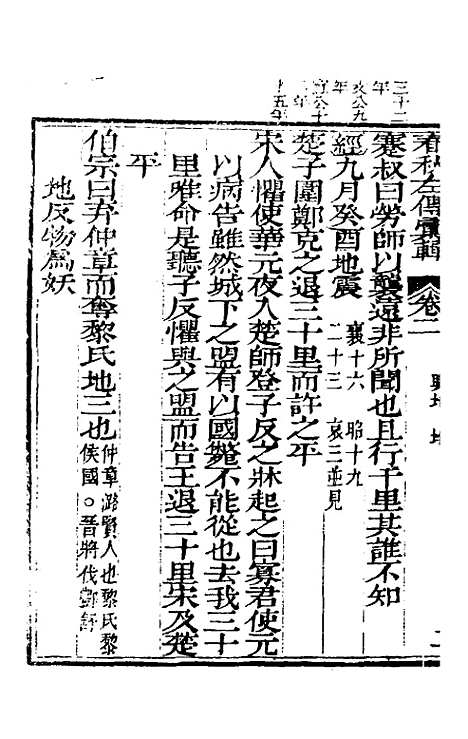 三十二年
文公九年
宣公十二年
十五年
春秋左傳 卷二
蹇叔曰勞師以襲遠非所聞也且行千里其誰不知
經九月癸酉地震 襄十六 昭十九 二十三 哀三並見
楚子圍鄭克之退三十里而許之平
宋人懼使華元夜入楚師登子反之牀起之曰寡君使元
以病告雖然城下之盟有以國斃不能從也去我三十
里唯命是聽子反懼與之盟而告王退三十里宋及楚
平
伯宗曰弃仲章而奪黎氏地三也 仲章潞賢人也黎氏黎侯國○晉將伐
地反物爲妖